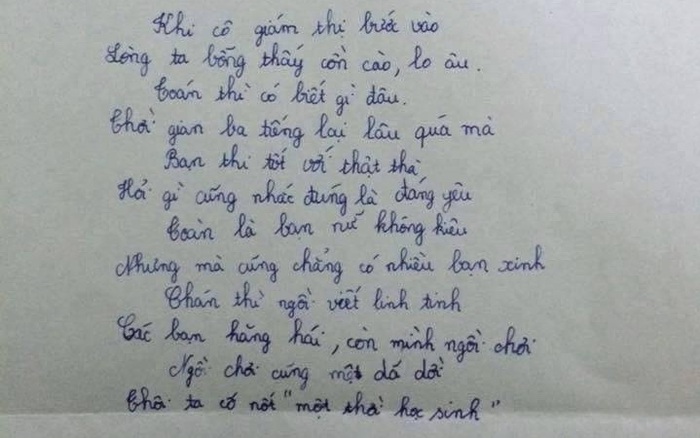 Khi cô giám thị bước vào
Lòng ta bỗng thấy cồn cào, lo âu.
Toán thì có biết gì đâu.
Thời gian ba tiếng lại lâu quá mà
Bạn thi tốt với thật thà
Hỏi gì cũng nhắc đúng là đáng yêu
Toàn là bạn nữ không kiêu
Nhưng mà cũng chẳng có nhiều bạn xinh
Chán thì ngồi viết linh tinh
Các bạn hăng hái, còn mình ngồi chơi
Ngồi chơi cũng một dá dời
Thôi ta cố nốt "một thời học sinh"